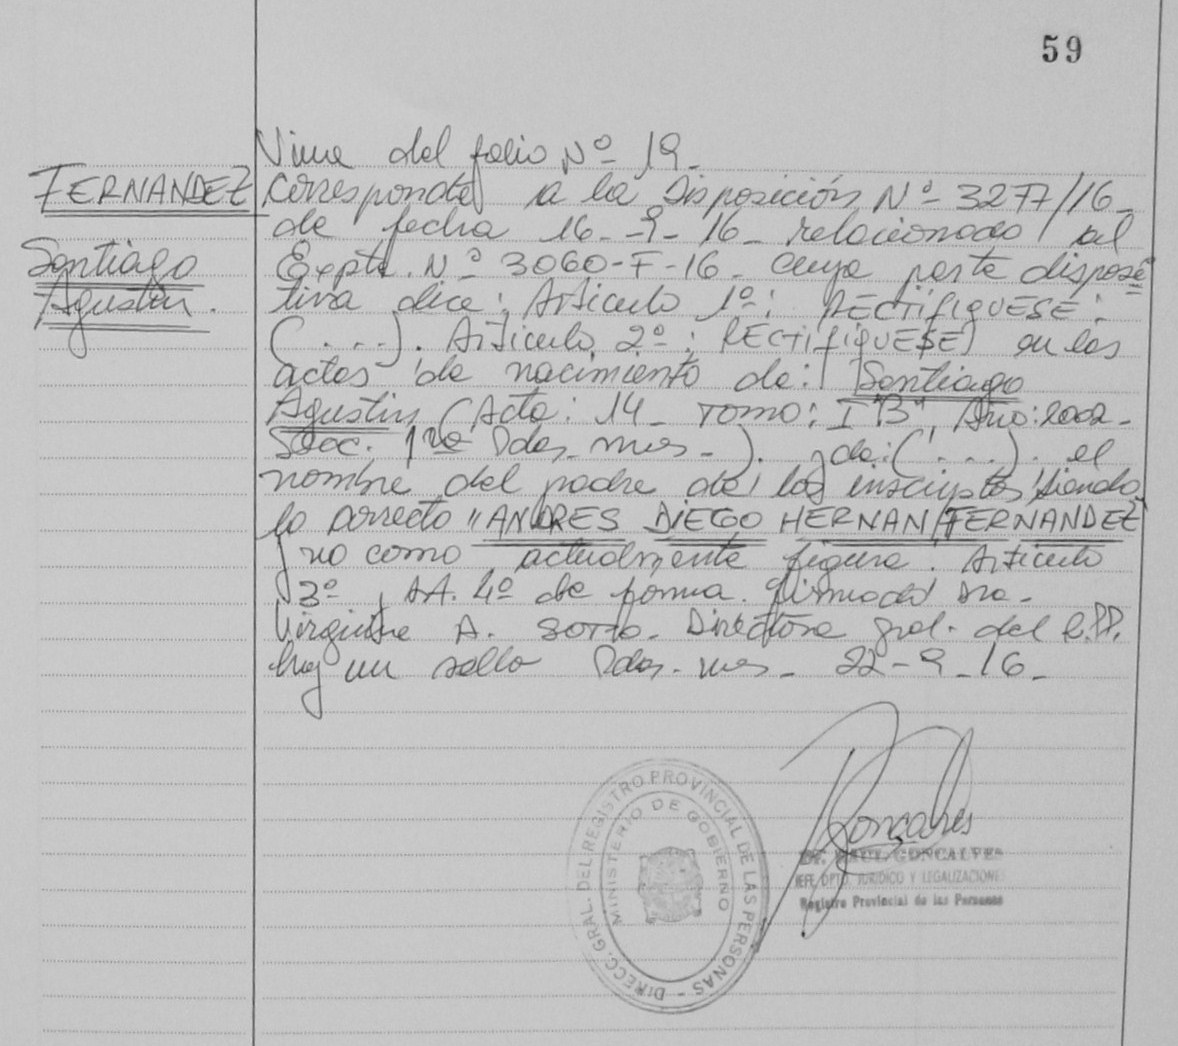 59
Viene del folio Nº 19_
FERNANDEZ
Corresponde a la Disposición Nº 3277/16_
de fecha 16-9-16_ relacionado al
Santiago
Expte. Nº 3060-F-16_ cuya parte disposi
Agustín.
tiva dice: Artículo 1º: RECTIFIQUESE:
(....). Artículo 2º: RECTIFIQUESE en las
actas de nacimiento de: Santiago
Agustín (Acta: 14_ Tomo: I "B", Año: 2002_
Secc. 1ra Pdas. mnes_). y de: (....). el
nombre del padre de los inscriptos siendo
lo correcto "ANDRES DIEGO HERNAN FERNANDEZ"
y no como actualmente figura. Artículo
3º, AA. 4º de forma. firmado Dra_
A. Sotto_ Directora Gral. del R.PP.
hay un sello Pdas. mnes_ 22-9-16_
DIRECC. GRAL. DEL REGISTRO PROVINCIAL DE LAS PERSONAS -
MINISTERIO DE GOBIERNO
Goncalves
Dr. RAUL GONCALVES
JEFE DPTO. JURIDICO Y LEGALIZACIONES
Registro Provincial de las Personas